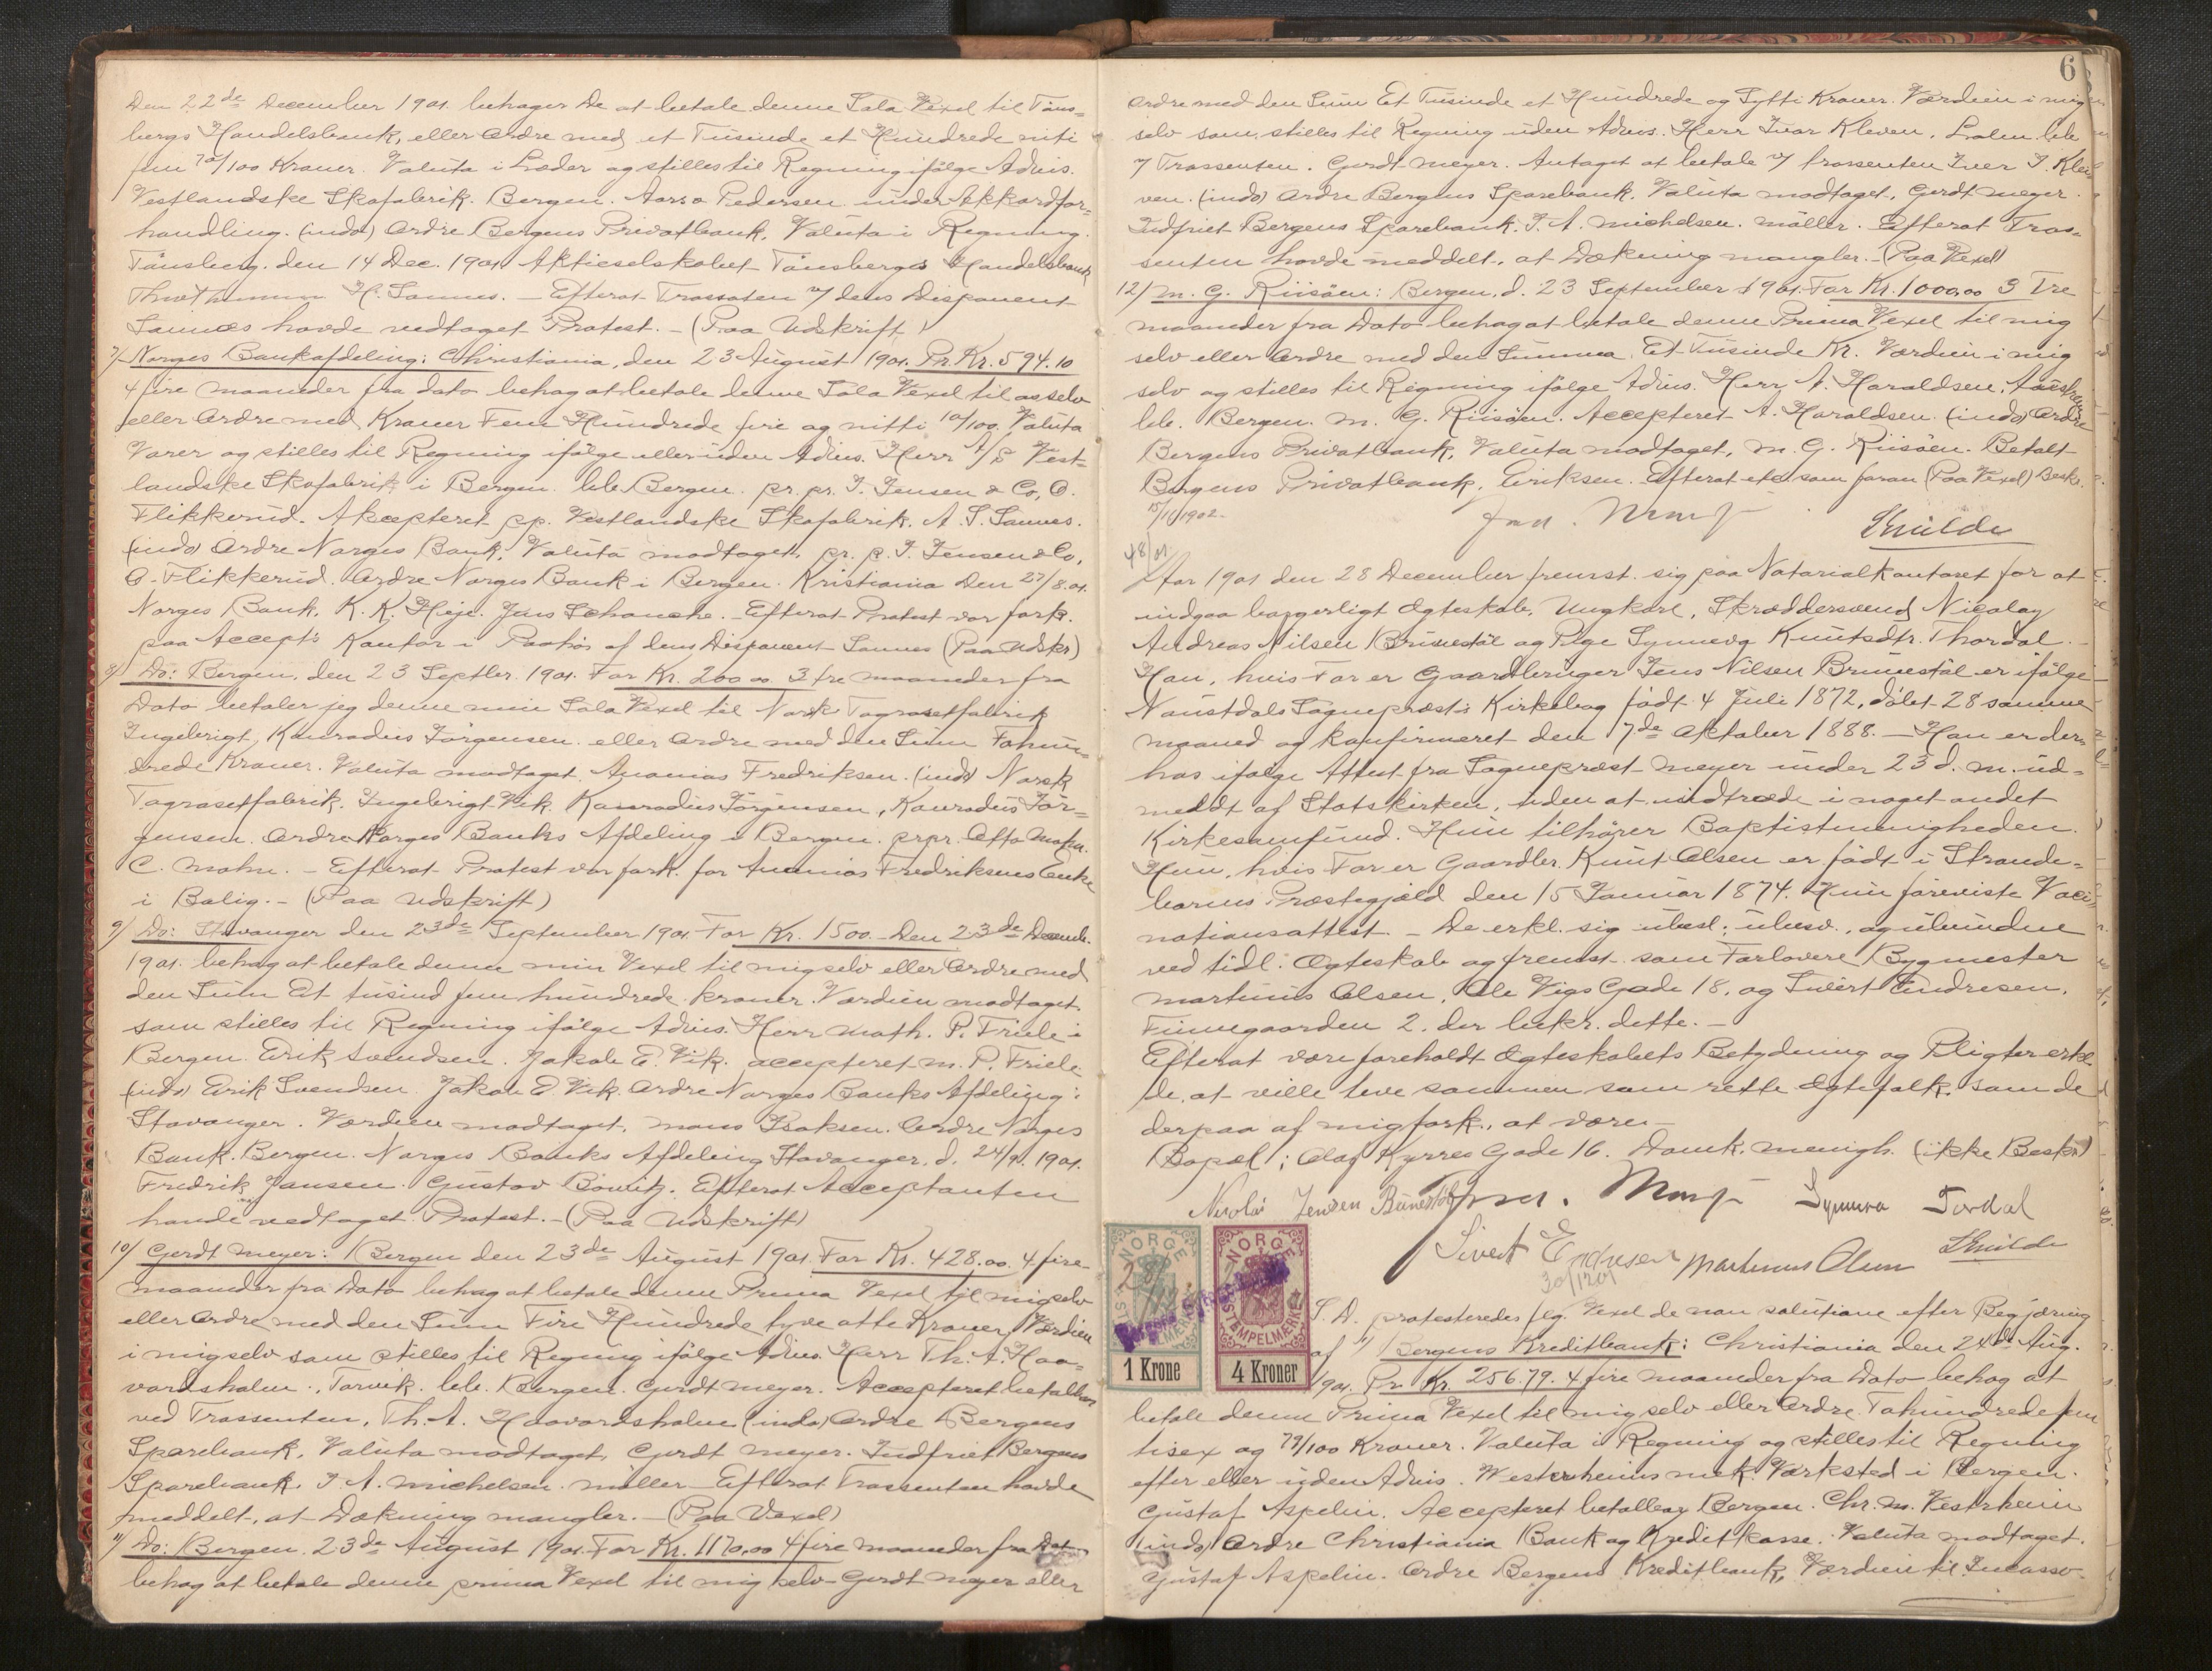 Den 22de December 1901. behager De at betale denne Sola Vexel til Töns=
bergs Handelsbank, eller Ordre med et Tusinde et Hundrede niti
fem 70/100 Kroner. Valuta i Læder og stilles til Regning ifölge Advis.
Vestlandske Skofabrik. Bergen. Pedersen under Akkordfor=
handling. (indo) Ordre Bergens Privatbank. Valuta i Regning.
Tönsberg. den 14 Dec. 1901 Aktieselskabet Tönsbergs Handelsbank
H. Sannes. – Efterat Trassaten v/ dens Disponent
Sannes havde vedtaget Protest. – (Paa Udskrift)
7/ Norges Bankafdeling: Christiania, den 23 August 1901. Pr. Kr. 594.10
4 fire maaneder fra dato behag at betale denne Sola Vexel til os selv
eller Ordre med Kroner Fem Hundrede fire og nitti 10/100. Valuta
Varer og stilles til Regning ifölge eller uden Advis. Herr A/S Vest=
landske Skofabrik i Bergen. bb. Bergen. pr. pr. J. Jensen & Co, O.
Flikkerud. Akcepteret pp. Vestlandske Skofabrik. A. S. Sannes.
(indo) Ordre Norges Bank, Valuta modtaget, pr. p. J. Jensen & Co,
O. Flikkerud. Ordre Norges Bank i Bergen. Kristiania Den 27/8.01.
Norges Bank. K. K. Heje. Jens Schanche. – Efterat Protest var fork.
paa Accepts Kontor i Paahör af dens Disponent Sannes (Paa Udskr)
8/ Do: Bergen, den 23 Septbr. 1901. For Kr. 200.00. 3 tre maaneder fra
Dato betaler jeg denne min Sola Vexel til Norsk Tograsetfabrik
Ingebrigt, Konradus Jörgensen eller Ordre med den Sum Tohun=
drede Kroner. Valuta modtaget. Ananias Fredriksen. (indo) Norsk
Tograsetfabrik. Ingebrigt Vik. Konradus Jörgensen, Konradus Jör=
gensen. Ordre Norges Banks Afdeling i Bergen. prpr. Otto Mohn.
C. Mohn. – Efterat Protest var fork. for Ananias Fredriksens Enke
i Bolig. – (Paa Udskrift)
9/ Do: Stavanger den 23de September 1901. For Kr. 1500. – Den 23de Decemb.
1901. behag at betale denne min Vexel til mig selv eller Ordre med
den Sum Et tusind fem hundrede kroner. Værdien modtaget.
som stilles til Regning ifölge Advis. Herr Math. P. Friele i
Bergen. Erik Svendsen. Jakob E. Vik. accepteret M. P. Friele.
(indo) Erik Svendsen. Jakob E Vik. Ordre Norges Banks Afdeling i
Stavanger. Værdien modtaget, Mons Isaksen. Ordre Norges
Bank. Bergen. Norges Banks Afdeling Stavanger. d. 24/9. 1901.
Fredrik Jansen. Gustav Bowitz. Efterat Acceptanten
havde vedtaget Protest. – (Paa Udskrift)
10/ Gerdt Meyer: Bergen den 23de August 1901 For Kr. 428.00. 4 fire
maaneder fra Dato behag at betale denne Prima Vexel til mig selv
eller Ordre med den Sum Fire Hundrede tyve otte Kroner, Værdien
i mig selv som stilles til Regning ifölge Advis. Herr Th. A. Haa=
vardsholm. Torvik. bb. Bergen. Gerdt Meyer. Accepteret betalbar
ved Trassenten, Th. A. Haavardsholm (indo) Ordre Bergens
Sparebank. Valuta modtaget, Gerdt Meyer. Indfriet Bergens
Sparebank. J. A. Michelsen. Müller. Efterat Trassenten havde
meddelt, at Dækning mangler. – (Paa Vexel)
11/ Do: Bergen. 23de August 1901. For Kr. 1170,00 4 fire maaneder fra Dato
behag at betale denne prima Vexel til mig selv Gerdt Meyer eller
6
Ordre med den Sum Et Tusinde et Hundrede og Sytti Kroner. Værdien i mig
selv som stilles til Regning uden Advis. Herr Ivar Kleven. bb
v/ Trassenten. Gerdt Meyer. Antaget at betale v/ trassenten Iver J. Kle=
ven. (indo) Ordre Bergens Sparebank. Valuta modtaget, Gerdt Meyer.
Indfriet Bergens Sparebank. J. A. Michelsen. Müller. Efterat Tras=
senten havde meddelt, at Dækning mangler. – (Paa Vexel)
12/ M. G. Riisöen: Bergen, d. 23 September 1901. For Kr. 1000,00 3 Tre
maaneder fra Dato behag at betale denne Prima Vexel til mig
selv eller Ordre med den Summa Et Tusinde Kr. Værdien i mig
selv og stilles til Regning ifölge Advis. Herr A. Haraldsen.
bb. Bergen. M. G. Riisöen. Accepteret A. Haraldsen (indo) Ordre
Bergens Privatbank, Valuta modtaget, M. G. Riisöen. Betalt
Bergens Privatbank, Eriksen. Efterat etc. som foran (Paa Vexel) Beskr.
15/11 1902.
Skilde
48/01
Aar 1901 den 28 December fremst. sig paa Notarialkontoret for at
indgaa borgerligt Ægteskab, Ungkarl, Skræddersvend Nicolay
Andreas Nilsen Brunestöl og Pige Synneva Knutsdtr. Thordal. –
Han, hvis Far er Gaardbruger Jens Nilsen Brunestöl er ifölge
Naustdals Sognepræsts Kirkebog födt 4 Juli 1872, döbt 28 samme
maaned og konfirmeret den 7de Oktober 1888. – Han er der=
hos ifölge Attest fra Sognepræst Meyer under 23 d. m. ud=
meldt af Statskirken, uden at indtræde i noget andet
Kirkesamfund. Hun tilhörer Baptistmenigheden.
Hun, hvis Far er Gaardbr. Knut Olsen er födt i Strande=
barms Præstegjæld den 15 Januar 1874. Hun foreviste Vacci=
nationsattest. – De erkl. sig ubesl., ubesv. og ubundne
ved tidl. Ægteskab og fremst. som Forlovere Bygmester
Martinus Olsen, Ole Vigs Gade 18. og Sivert Endresen,
Finnegaarden 2. der bekr. dette. –
Efterat være foreholdt Ægteskabets Betydning og Pligter erkl.
de, at ville leve sammen som rette Ægtefolk, som de
derpaa af mig fork., at være. –
Bopæl: Olaf Kyrres Gade 16. Domk. menigh. (ikke Beskr)
Nicolai Jensen Brunestöl Synneva Tordal
Sivert Endresen Martinus Olsen Skilde
30/12 01
NORGE STEMPELMÆRKE 1 Krone
NORGE STEMPELMÆRKE 4 Kroner
S. D. protesteredes flg. Vexel de non solutione efter Begjæring
af 1/ Bergens Kreditbank: Christiania den 24de Aug.
1901. Pr. Kr. 256.79. 4 fire maaneder fra Dato behag at
betale denne Prima Vexel til mig selv eller Ordre Tohundrede fem
tisex og 79/100 Kroner. Valuta i Regning og stilles til Regning
efter eller uden Advis. Westerheims mek. Værksted i Bergen.
Gustaf Aspelin. Accepteret betalbar Bergen. Chr. M. Vestrheim
(indo) Ordre Christiania Bank og Kreditkasse. Valuta modtaget.
Gustaf Aspelin. Ordre Bergens Kreditbank, Værdien til Incasso.